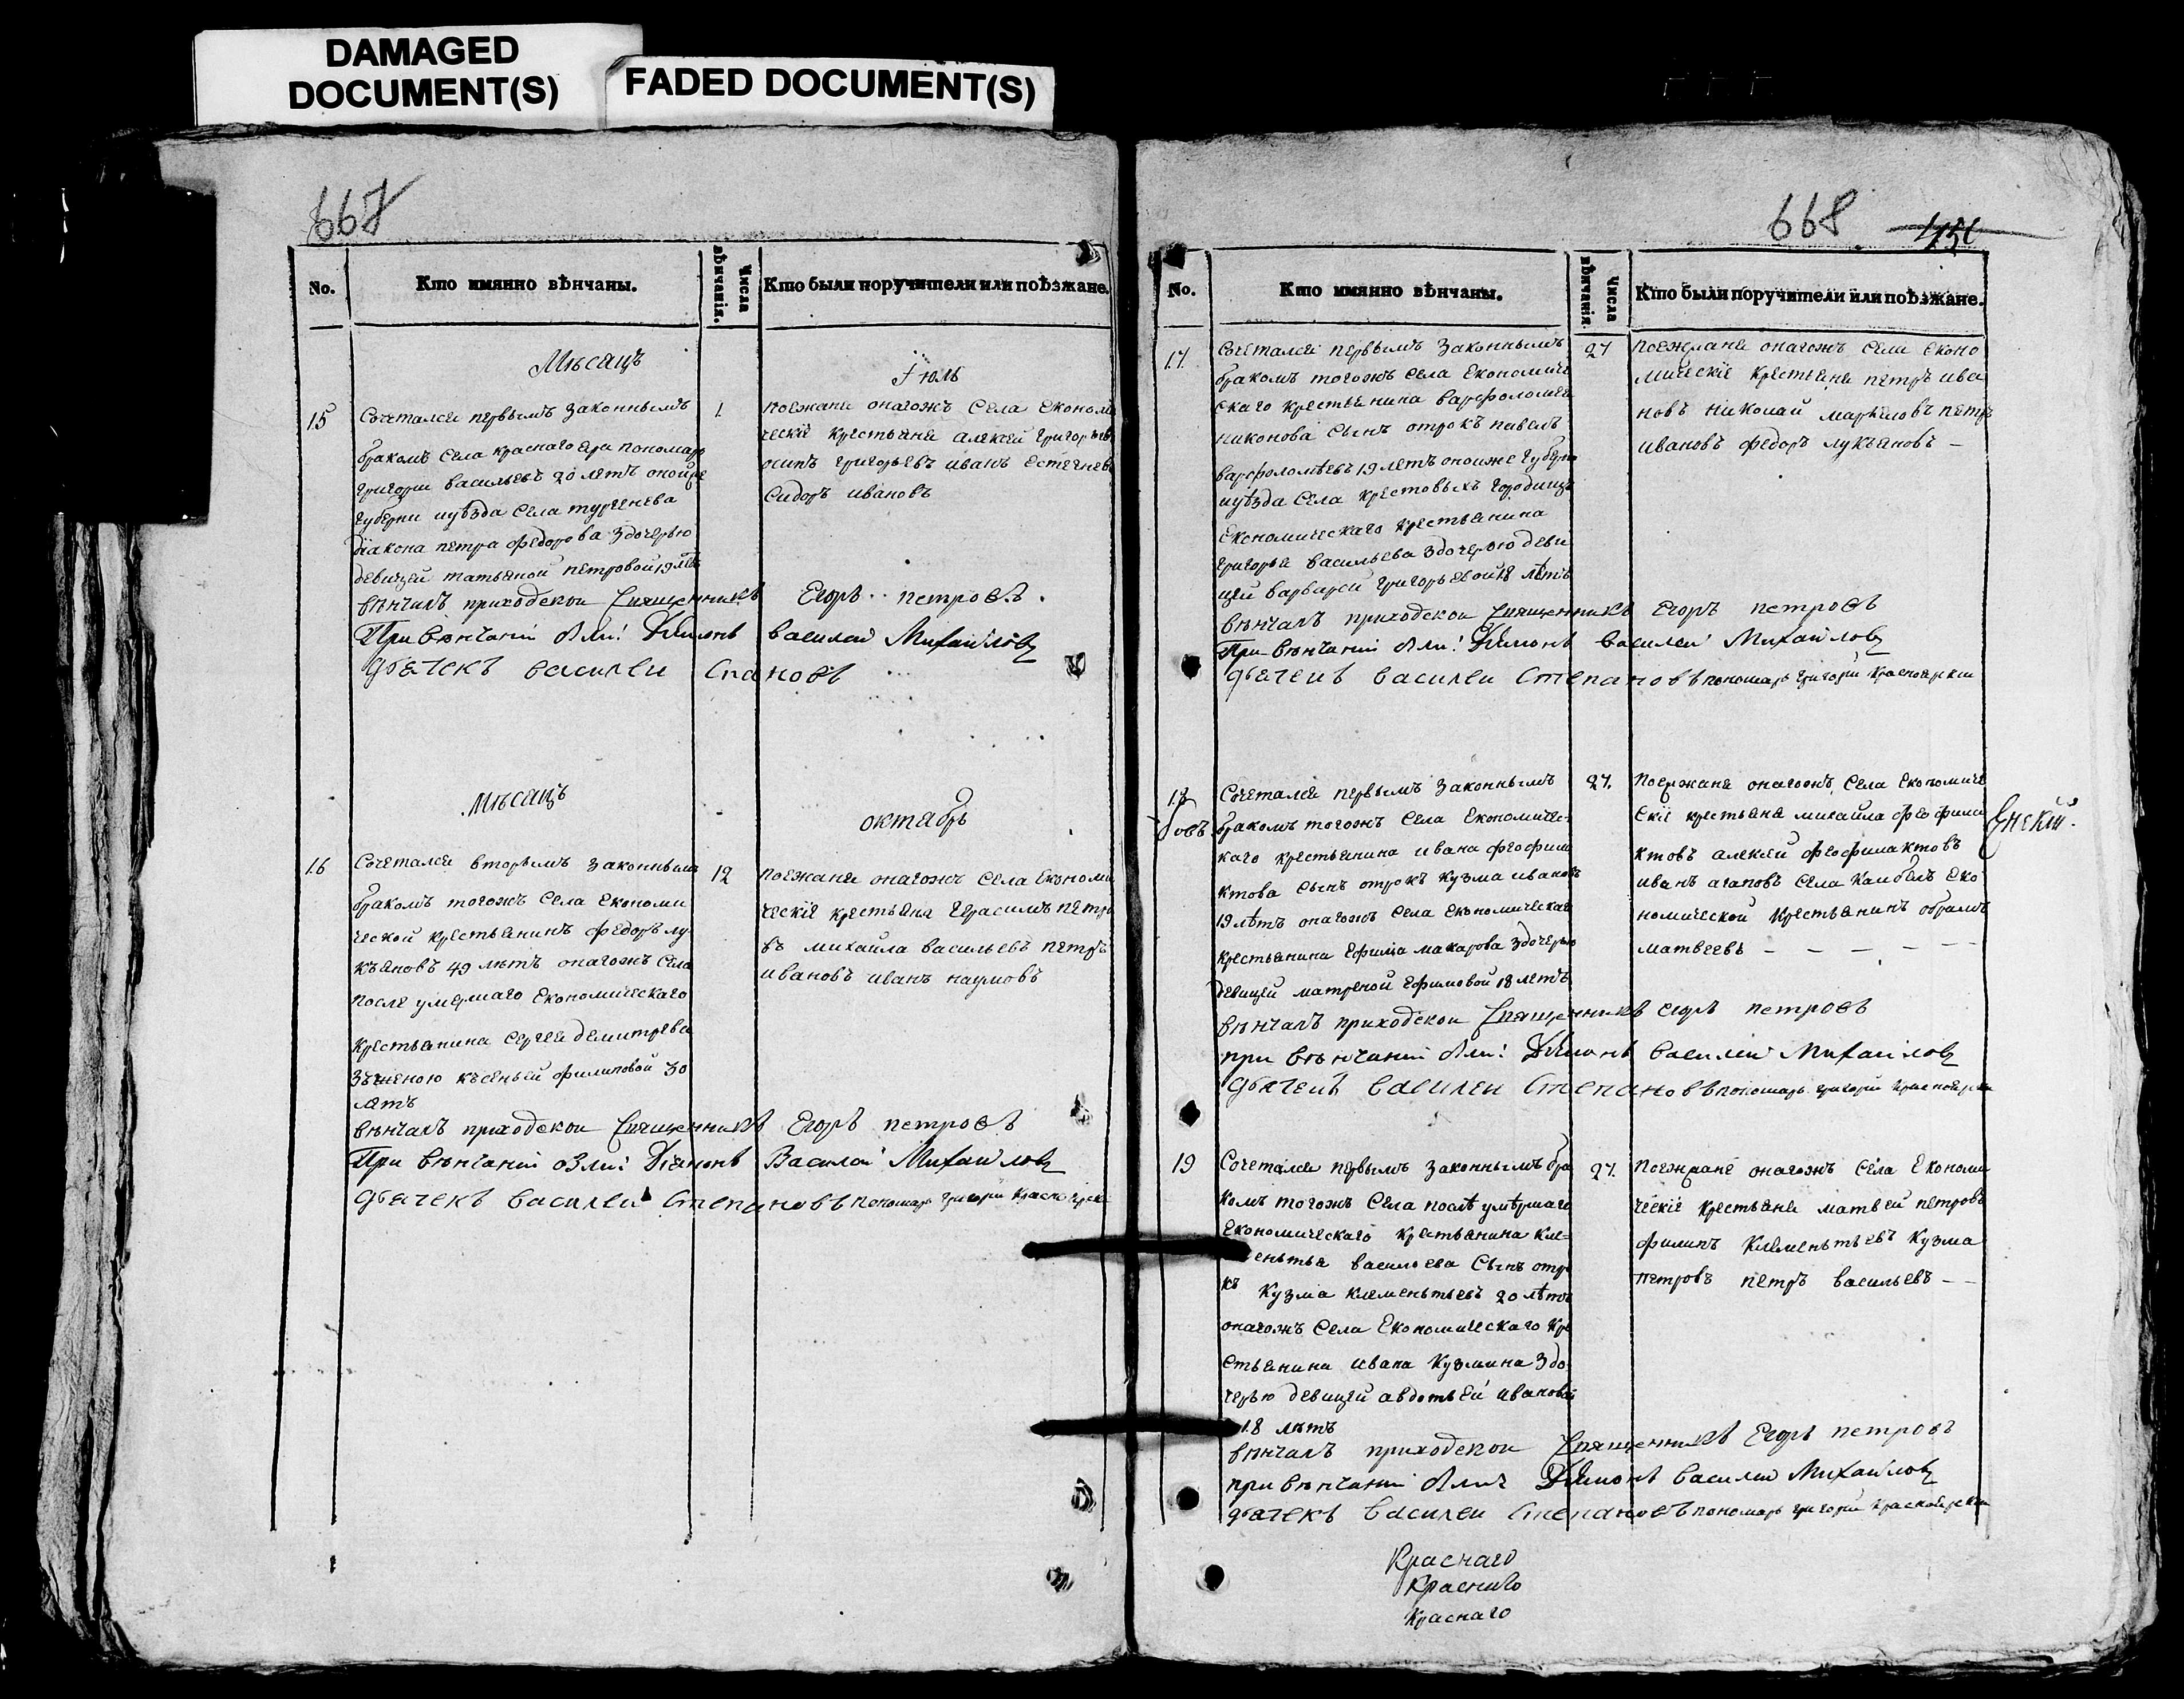 DAMAGED
DOCUMENT(S)
FADED DOCUMENT(S)
667
No.
Кто имянно вѣнчаны.
Числа вѣнчанія.
Кто были поручители или поѣзжане.
Мѣсяцъ
Іюль
15
1.
Сочетался первымъ законнымъ
бракомъ села краснаго яра пономарь
григори васильевъ 20 летъ оной же
губерни иуѣзда села тургенева
діакона петра федорова здочерью
девицей татьяной петровой 19 летъ
поезжане онагожъ села економи
ческіе крестьяне алексей григорьевъ
осипъ григорьевъ иванъ
сидоръ ивановъ
вѣнчалъ приходскои священникъ Егоръ петровъ.
При вѣнчаніи были: Діаконъ василей Михайловъ
дьячекъ василеи
Мѣсяцъ
октябрь
16
12
Сочетался вторымъ законнымъ
бракомъ тогожъ села економи
ческой крестьянинъ федоръ лу
кьяновъ 49 лѣтъ онагожъ села
после умершаго економическаго
крестьянина сергея демитрева
зженою ксеньей филиповой 30
летъ
поезжане онагожъ села економи
ческіе крестьяне герасимъ петро
въ михайла васильевъ петръ
ивановъ иванъ наумовъ
вѣнчалъ приходскои священникъ Егоръ петровъ
При вѣнчаніи были: Діаконъ Василей Михайловъ
дьячекъ василеи Степановъ пономарь григори красноярски
668
No.
Кто имянно вѣнчаны.
Числа вѣнчанія.
Кто были поручители или поѣзжане.
17.
27
Сочетался первымъ законнымъ
бракомъ тогожъ села економиче
скаго крестьянина варфоломея
никонова сынъ отрокъ павелъ
варфоломѣевъ 19 летъ оноиже губерни
иуѣзда села крестовыхъ городищъ
економическаго крестьянина
григорья васильева здочерью деви
цей варварой григорьевой 18 лѣтъ
поезжане онагожъ села еконо
мическіе крестьяне петръ ива
новъ николай маркеловъ петръ
ивановъ федоръ лукьяновъ —
вѣнчалъ приходскои священникъ Егоръ петровъ
При вѣнчаніи были: Діаконъ василеи Михайловъ
дьячекъ василеи Степановъ пономарь григори красноярски
18
27.
Сочетался первымъ законнымъ
бракомъ тогожъ села економичес
каго крестьянина ивана феофила
ктова сынъ отрокъ кузма ивановъ
19 лѣтъ онагожъ села економическаго
крестьянина ефима макарова здочерью
девицей матреной ефимовой 18 летъ
поезжане онагожъ села економиче
скіе крестьяне михайла феофила
ктовъ алексей феофилактовъ
иванъ агаповъ села каибелъ еко
номической крестьянинъ абрамъ
матвеевъ — — — — —
вѣнчалъ приходскои священникъ егоръ петровъ
при вѣнчаніи были: Діаконъ василеи Михайловъ
дьячекъ василеи Степановъ пономарь григори красноярски
19
27.
Сочетался первымъ законнымъ бра
комъ тогожъ села послѣ умѣршаго
економическаго крестьянина кле
ментья васильева сынъ отро
къ кузма клементьевъ 20 лѣтъ
онагожъ села економическаго кре
стьянина ивана кузмина здо
черью девицей авдотьей ивановой
18 лѣтъ
поезжане онагожъ села економи
ческіе крестьяне матвей петровъ
филипъ клементьевъ кузма
петровъ петръ васильевъ — —
вѣнчалъ приходскои священникъ Егоръ петровъ
при вѣнчаніи были Діаконъ василеи Михайловъ
дьячекъ василеи Степановъ пономарь григори красноярски
Краснаго
Краснаго
Краснаго